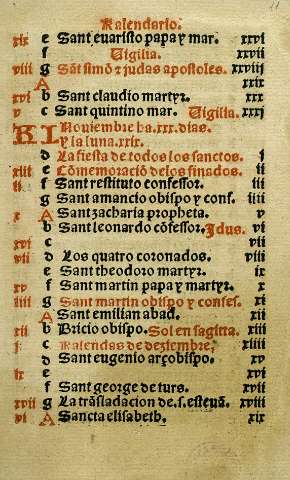 Kalendario.
xix e Sant euaristo papa y mar. xxvi
f Vigilia. xxvii
viii g Sãt simõ z judas apostoles. xxviij
A xxix
xvi b Sant claudio martyr. xxx
v c Sant quintino mar. Vigilia. xxxj
KL Nouiembre ha .xxx. dias.
y la luna .xxix.
d La fiesta de todos los sanctos. j
xiii e Cõmemoraciõ de los finados. ii
ii f Sant restituto confessor. iii
g Sant amancio obispo y conf. iiii
x A Sant zacharia propheta. v
b Sant leonardo cõfessor. Jdus. vi
xvi c vii
vii d Los quatro coronados. viii
e Sant theodoro martyr. ix
xv f Sant martin papa y martyr. x
iiii g Sant martin obispo y confes. xi
A Sant emilian abad. xii
xii b Bricio obispo. Sol en sagitta. xiii
j c Kalendas de deziembre. xiiii
d Sant eugenio arçobispo. xv
ix e xvi
f Sant george de turs. xvii
xvii g La trãsladacion de .s. esteuã. xviii
vi A Sancta elisabeth. xix